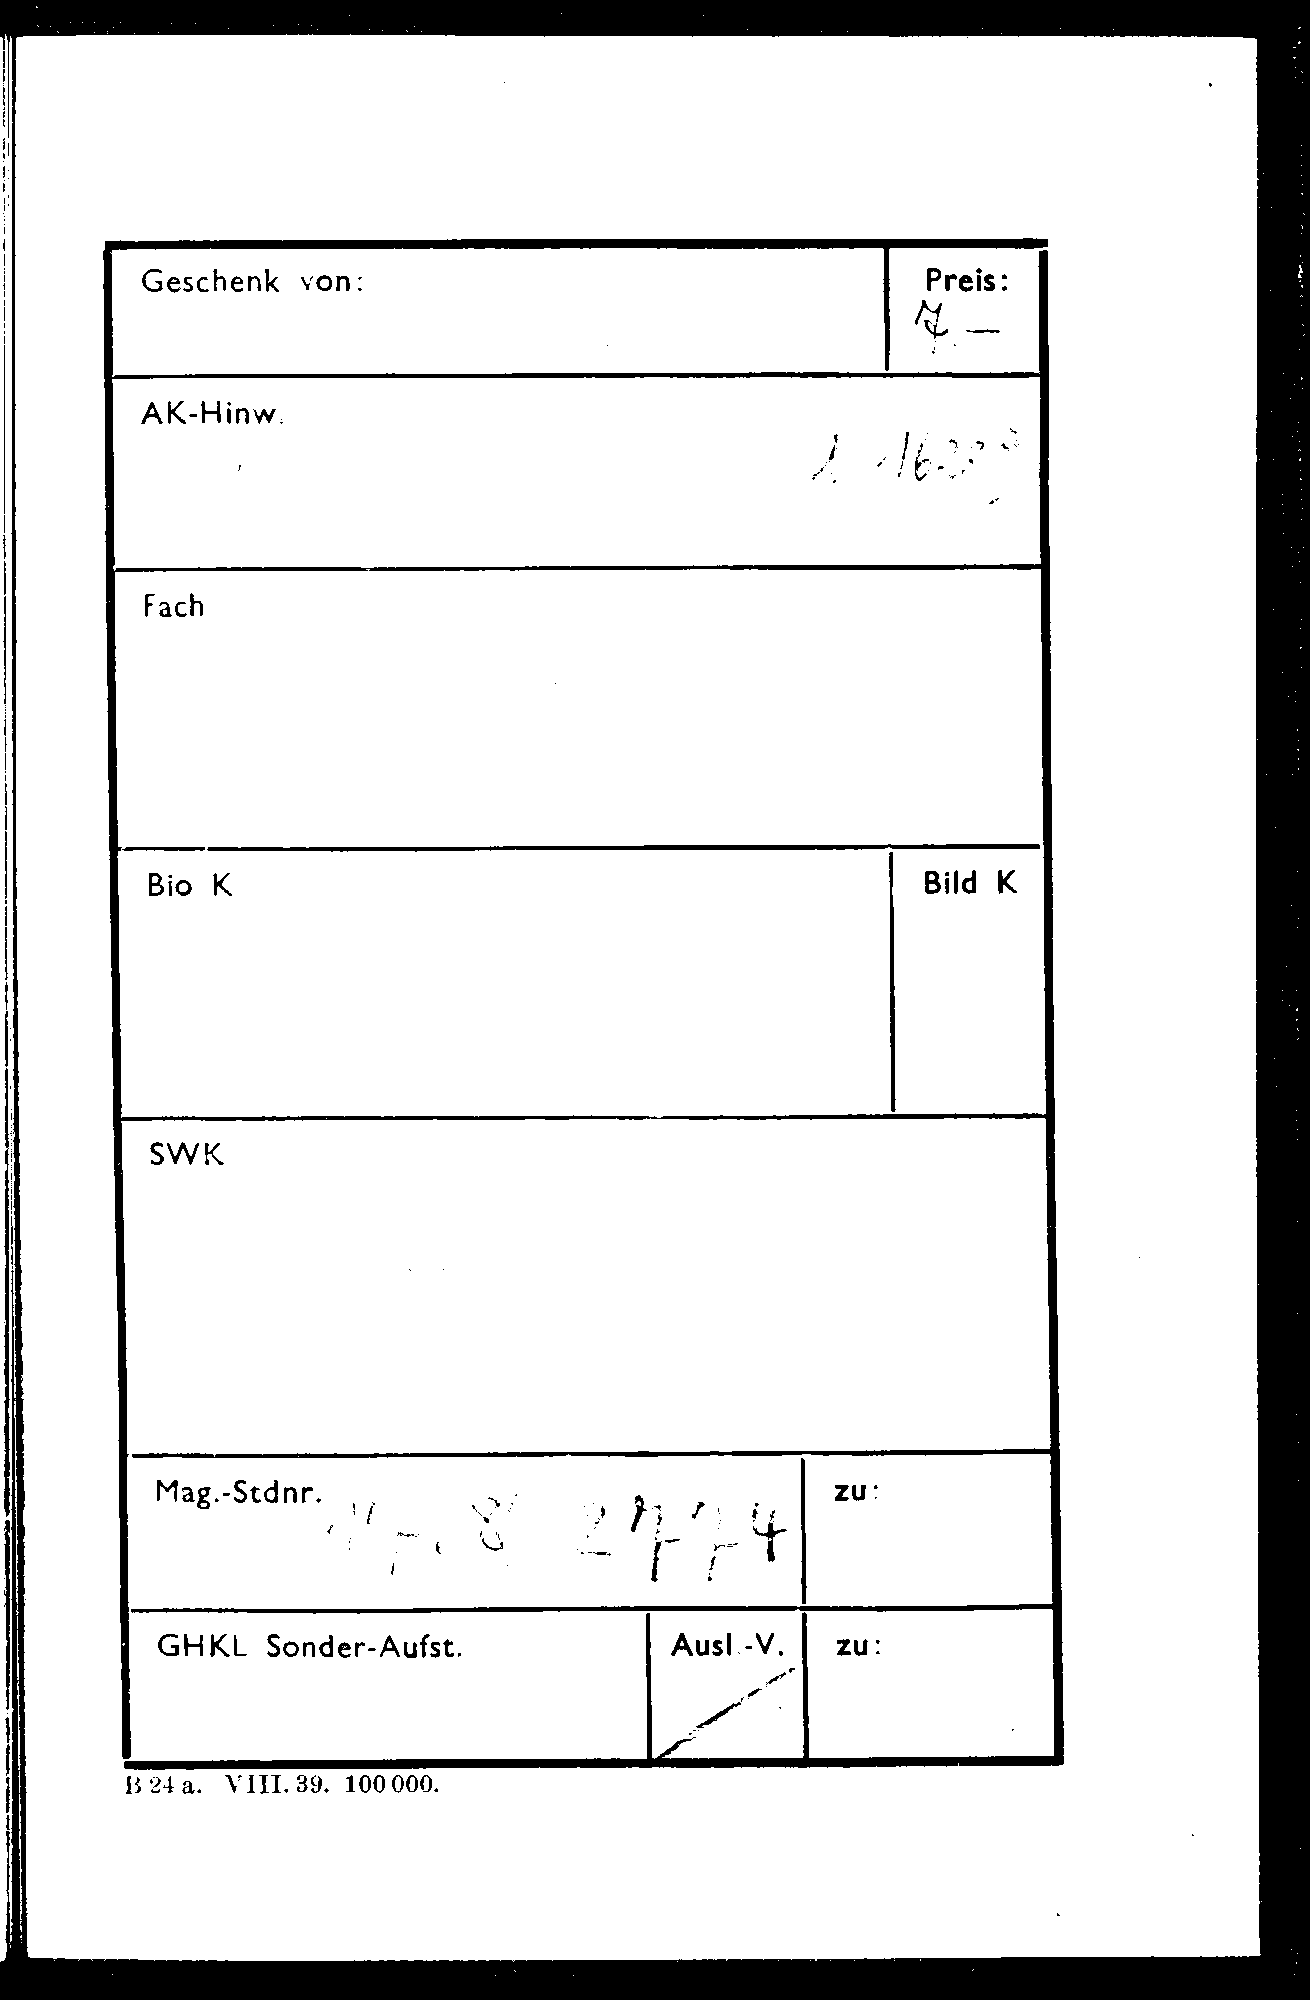 Geschenk von: Preis:
7.—
AK-Hinw.
Fach
Bio K Bild K
SWK
Mag.-Stdnr. zu:
8 2774
GHKL Sonder-Aufst. Ausl.-V. zu:
B 24 a. VIII. 39. 100 000.